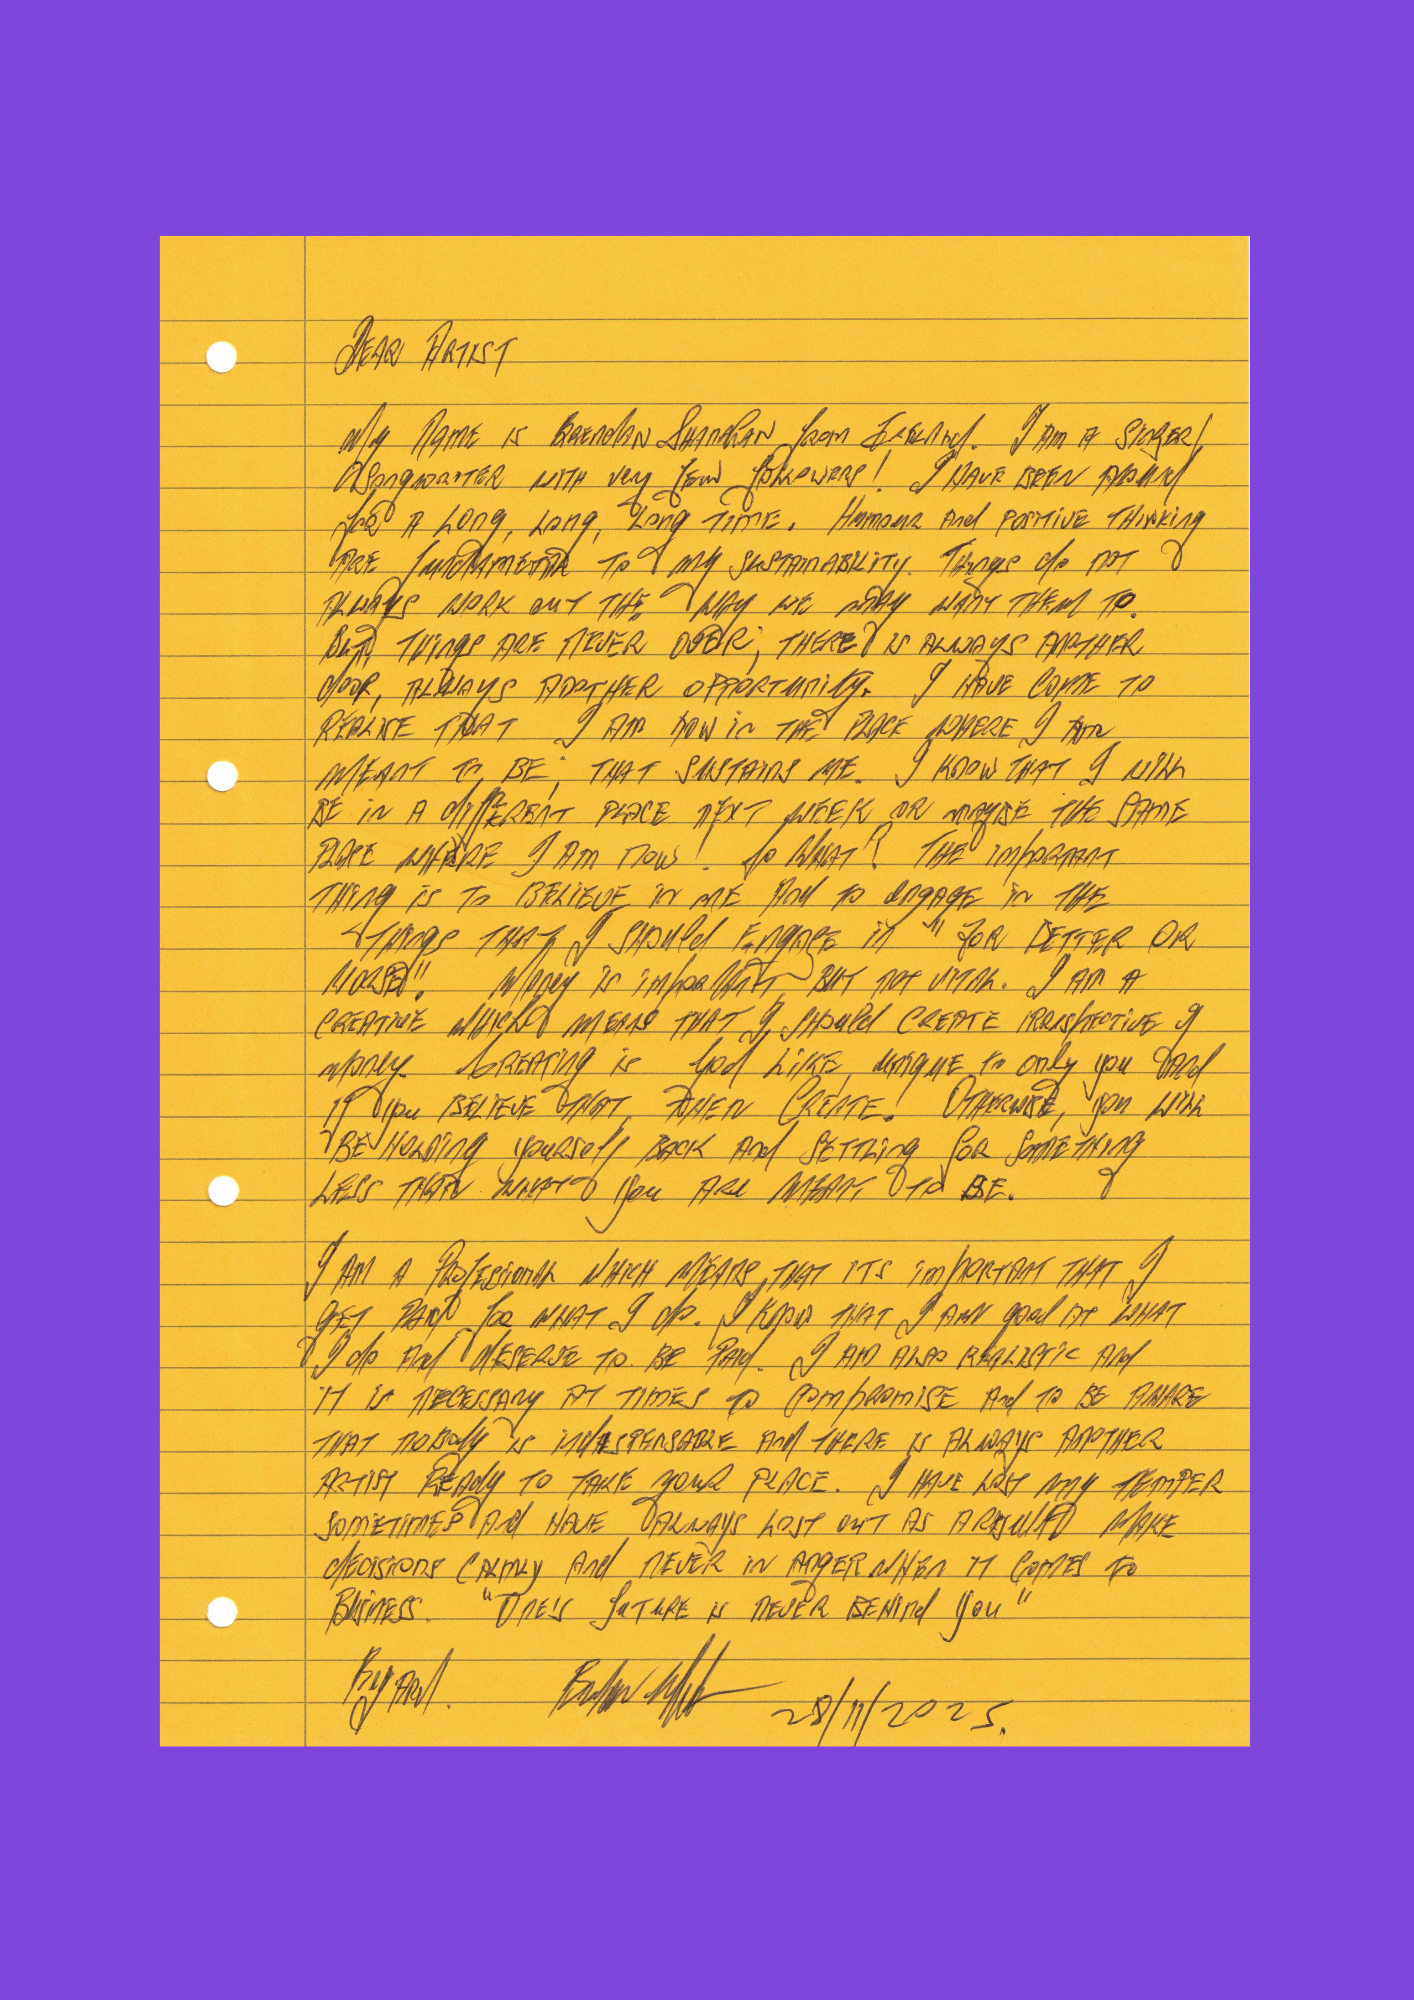 Dear Artist
My name is Brendan Shanahan from Ireland. I am a singer/
songwriter with very few followers! I have been around
for a long, long, long time. Humour and positive thinking
are fundamental to my sustainability. Things do not
always work out the way we may want them to.
But, things are never over; there is always another
door, always another opportunity. I have come to
realise that I am now in the place where I am
meant to be; that sustains me. I know that I will
be in a different place next week or maybe the same
place where I am now! So what? The important
thing is to believe in me and to engage in the
things that I should engage in "for better or
worse"! Money is important, but not vital. I am a
creative which means that I should create irrispective of
money. Creating is God like, unique to only you and
if you believe that, then create! Otherwise, you will
be holding yourself back and settling for something
less than what you are meant to be.
I am a professional which means that its important that I
get paid for what I do. I know that I am good at what
I do and deserve to be paid. I am also realistic and
it is necessary at times to compromise and to be aware
that nobody is indispensable and there is always another
artist ready to take your place. I have lost my temper
sometimes and have always lost out as a result make
decisions calmly and never in anger when it comes to
business. "One's future is never behind you"
28/11/2025.